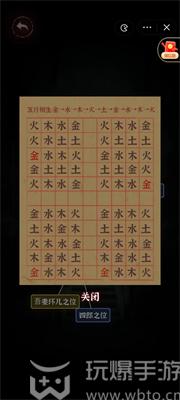 五行相生 金→水→木→火→土→金→水→木→火
火 木 水 金 火 木 水 金
火 水 土 土 土 土 水 火
金 水 木 火 火 木 水 金
金 水 土 土 土 土 水 金
火 木 水 火 火 水 木 金
金 水 木 火 火 木 水 金
火 土 土 水 水 土 土 火
火 木 水 金 金 水 木 火
金 土 土 火 火 土 土 金
金 水 木 火 金 水 木 火
关闭
吾妻环儿之位
四郎之位
玩爆手游
www.wbto.cn